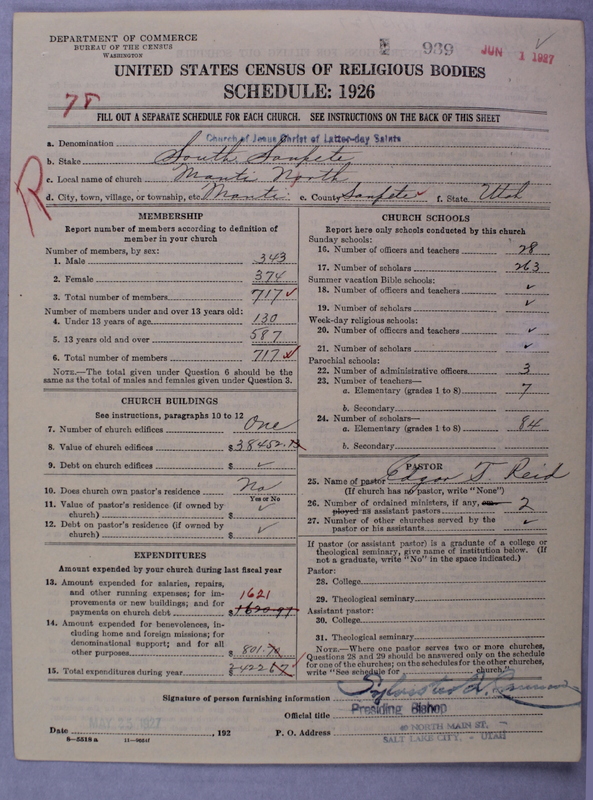 DEPARTMENT OF COMMERCE
BUREAU OF THE CENSUS
WASHINGTON
939
JUN 1 1927
UNITED STATES CENSUS OF RELIGIOUS BODIES
SCHEDULE: 1926
78
FILL OUT A SEPARATE SCHEDULE FOR EACH CHURCH. SEE INSTRUCTIONS ON THE BACK OF THIS SHEET
a. Denomination Church of Jesus Christ of Latter-day Saints
b. Stake South Sanpete
c. Local name of church Manti North
d. City, town, village, or township, etc. Manti e. County Sanpete f. State Utah
R
MEMBERSHIP
Report number of members according to definition of
member in your church
Number of members, by sex:
1. Male 343
2. Female 374
3. Total number of members 717
Number of members under and over 13 years old:
4. Under 13 years of age 130
5. 13 years old and over 587
6. Total number of members 717
NOTE.—The total given under Question 6 should be
same as the total of males and females given under Question 3.
CHURCH BUILDINGS
See instructions, paragraphs 10 to 12
7. Number of church edifices One
8. Value of church edifices $38452.73
9. Debt on church edifices $ ✓
10. Does church own pastor's residence No
Yes or No
11. Value of pastor's residence (if owned by
church) $ ✓
12. Debt on pastor's residence (if owned by
church) $ ✓
EXPENDITURES
Amount expended by your church during last fiscal year
13. Amount expended for salaries, repairs,
and other running expenses; for im-
provements or new buildings; and for
payments on church debt $ 1621
14. Amount expended for benevolences, in-
cluding home and foreign missions; for
denominational support; and for all
other purposes 801.70
15. Total expenditures during year $2422.67
CHURCH SCHOOLS
Report here only schools conducted by this church
Sunday schools:
16. Number of officers and teachers 28
17. Number of scholars 263
Summer vacation Bible schools:
18. Number of officers and teachers ✓
19. Number of scholars ✓
Week-day religious schools:
20. Number of officers and teachers ✓
21. Number of scholars ✓
Parochial schools:
22. Number of administrative officers 3
23. Number of teachers—
a. Elementary (grades 1 to 8) 7
b. Secondary
24. Number of scholars—
a. Elementary (grades 1 to 8) 84
b. Secondary
PASTOR
25. Name of pastor Edgar T Reid
(If church has no pastor, write "None")
26. Number of ordained ministers, if any, em-
ployed as assistant pastors 2
27. Number of other churches served by the
pastor or his assistants ✓
If pastor (or assistant pastor) is a graduate of a college or
theological seminary, give name of institution below. (If
not a graduate, write "No" in the space indicated.)
Pastor:
28. College
29. Theological seminary
Assistant pastor:
30. College
31. Theological seminary
NOTE.—Where one pastor serves two or more churches,
Questions 28 and 29 should be answered only on the schedule
for one of the churches; on the schedules for the other churches,
write "See schedule for church."
Signature of person furnishing information Sylvester Q. Cannon
Official title Presiding Bishop
Date MAY 25 1927, 192 P. O. Address 40 NORTH MAIN ST. -
SALT LAKE CITY, - UTAH
8-5518 a